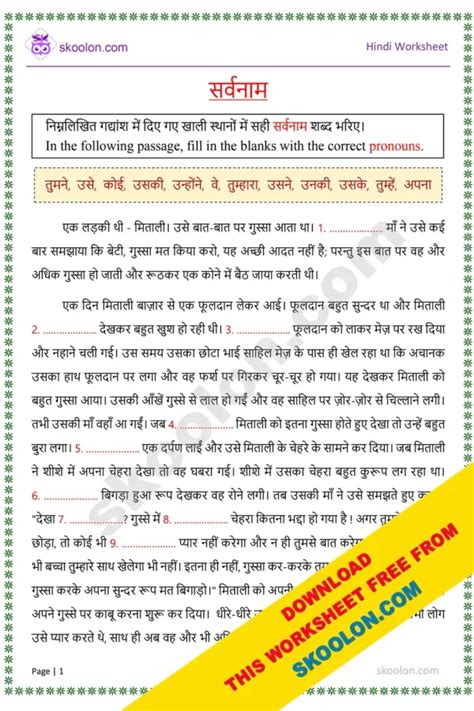 skoolon.com
Hindi Worksheet
सर्वनाम
निम्नलिखित गद्यांश में दिए गए खाली स्थानों में सही सर्वनाम शब्द भरिए।
In the following passage, fill in the blanks with the correct pronouns.
तुमने, उसे, कोई, उसकी, उन्होंने, वे, तुम्हारा, उसने, उनकी, उसके, तुम्हें, अपना
एक लड़की थी - मिताली। उसे बात-बात पर गुस्सा आता था। 1. .................... माँ ने उसे कई
बार समझाया कि बेटी, गुस्सा मत किया करो, यह अच्छी आदत नहीं है; परन्तु इस बात पर वह और
अधिक गुस्सा हो जाती और रूठकर एक कोने में बैठ जाया करती थी।
एक दिन मिताली बाज़ार से एक फूलदान लेकर आई। फूलदान बहुत सुन्दर था और मिताली
2. .................... देखकर बहुत खुश हो रही थी। 3. .................... फूलदान को लाकर मेज़ पर रख दिया
और नहाने चली गई। उस समय उसका छोटा भाई साहिल मेज़ के पास ही खेल रहा था कि अचानक
उसका हाथ फूलदान पर लगा और वह फर्श पर गिरकर चूर-चूर हो गया। यह देखकर मिताली को
बहुत गुस्सा आया। उसकी आँखें गुस्से से लाल हो गईं और वह साहिल पर ज़ोर-ज़ोर से चिल्लाने लगी।
तभी उसकी माँ वहाँ आ गईं। जब 4 .................... मिताली को इतना गुस्सा होते हुए देखा तो उन्हें बहुत
बुरा लगा। 5. .................... एक दर्पण लाईं और उसे मिताली के चेहरे के सामने कर दिया। जब मिताली
ने शीशे में अपना चेहरा देखा तो वह घबरा गई। शीशे में उसका चेहरा बहुत कुरूप लग रहा था।
6. .................... बिगड़ा हुआ रूप देखकर वह रोने लगी। तब उसकी माँ ने उसे समझाते हुए
"देखा 7. ....................? गुस्से में 8. .................... चेहरा कितना भद्दा हो गया है! अगर तुमने
छोड़ा, तो कोई भी 9. .................... प्यार नहीं करेगा और न ही तुमसे बात करेगा
भी बच्चा तुम्हारे साथ खेलेगा भी नहीं। इतना ही नहीं, गुस्सा कर-करके
करके अपना सुन्दर रूप मत बिगाड़ो।" मिताली को अपनी
अपने गुस्से पर काबू करना शुरू कर दिया। धीरे-धीरे
उसे प्यार करते थे, साथ ही अब वह और भी
DOWNLOAD
THIS WORKSHEET FREE FROM
SKOOLON.COM
Page | 1
skoolon.com
skoolon.com